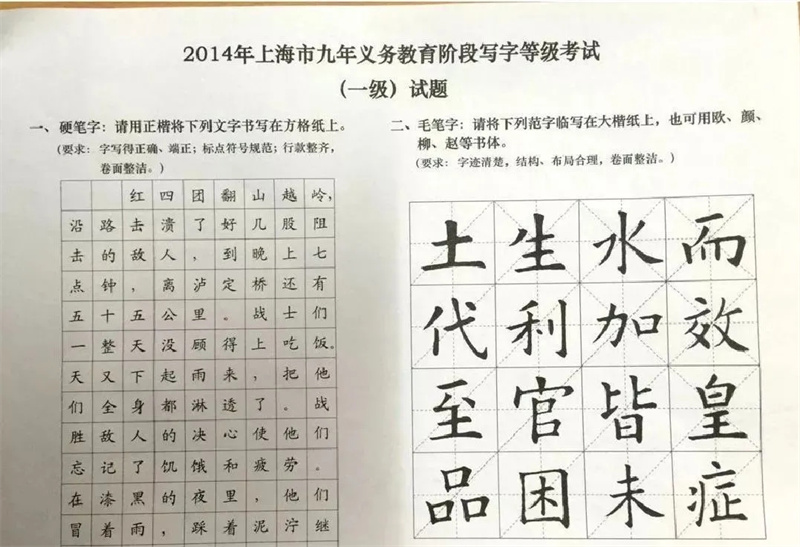 2014年上海市九年义务教育阶段写字等级考试
（一级）试题
一、硬笔字：请用正楷将下列文字书写在方格纸上。
（要求：字写得正确、端正；标点符号规范；行款整齐，
卷面整洁。）
红四团翻山越岭，
沿路击溃了好几股阻
击的敌人，到晚上七
点钟，离泸定桥还有
五十五公里。战士们
一整天没顾得上吃饭。
天又下起雨来，把他
们全身都淋透了。战
胜敌人的决心使他们
忘记了饥饿和疲劳。
在漆黑的夜里，他们
冒着雨，踩着泥泞继
二、毛笔字：请将下列范字临写在大楷纸上，也可用欧、颜、
柳、赵等书体。
（要求：字迹清楚，结构、布局合理，卷面整洁。）
土生水而
代利加效
至官皆皇
品困未症